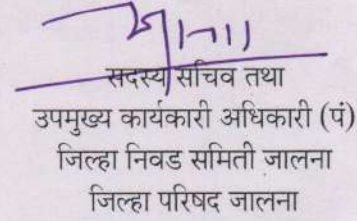 सदस्य सचिव तथा
उपमुख्य कार्यकारी अधिकारी (पं)
जिल्हा निवड समिती जालना
जिल्हा परिषद जालना